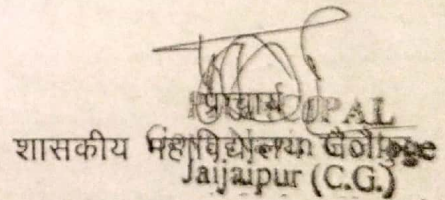 प्राचार्य
PRINCIPAL
शासकीय महाविद्यालय College
Jaijaipur (C.G.)